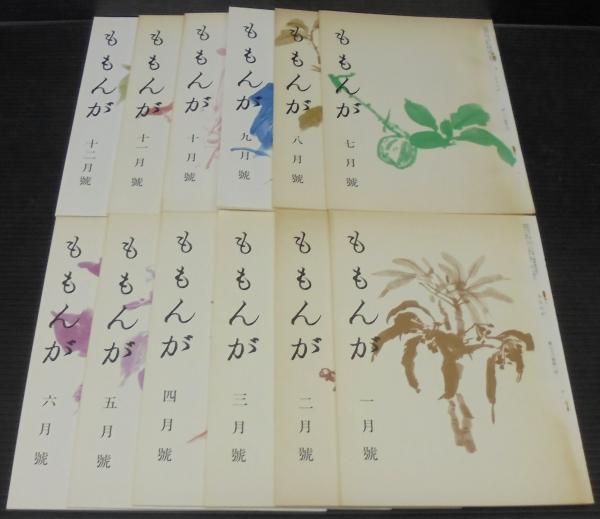 ももんが
十二月號
ももんが
十一月號
ももんが
十月號
ももんが
九月號
ももんが
八月號
ももんが
七月號
ももんが
六月號
ももんが
五月號
ももんが
四月號
ももんが
三月號
ももんが
二月號
ももんが
一月號